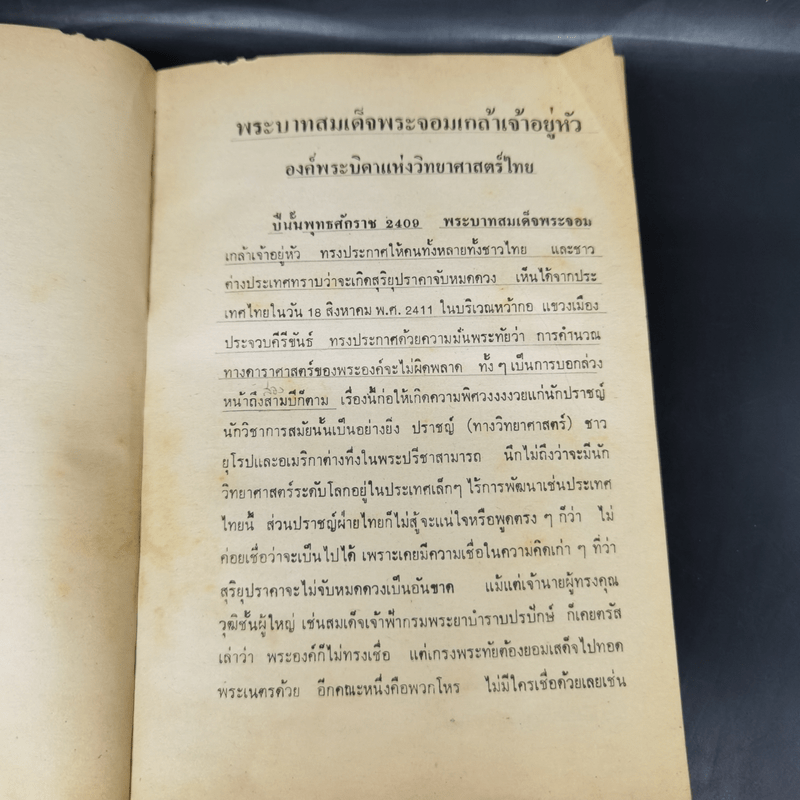 พระบาทสมเด็จพระจอมเกล้าเจ้าอยู่หัว
องค์พระบิดาแห่งวิทยาศาสตร์ไทย
ปีนั้นพุทธศักราช 2409 พระบาทสมเด็จพระจอม
เกล้าเจ้าอยู่หัว ทรงประกาศให้คนทั้งหลายทั้งชาวไทย และชาว
ต่างประเทศทราบว่าจะเกิดสุริยุปราคาจับหมดดวง เห็นได้จากประ
เทศไทยในวัน 18 สิงหาคม พ.ศ. 2411 ในบริเวณหว้ากอ แขวงเมือง
ประจวบคีรีขันธ์ ทรงประกาศด้วยความมั่นพระทัยว่า การคำนวณ
ทางดาราศาสตร์ของพระองค์จะไม่ผิดพลาด ทั้ง ๆ เป็นการบอกล่วง
สอง
หน้าถึงสามปีก็ตาม เรื่องนี้ก่อให้เกิดความพิศวงงงงวยแก่นักปราชญ์
นักวิชาการสมัยนั้นเป็นอย่างยิ่ง ปราชญ์ (ทางวิทยาศาสตร์) ชาว
ยุโรปและอเมริกาต่างทึ่งในพระปรีชาสามารถ นึกไม่ถึงว่าจะมีนัก
วิทยาศาสตร์ระดับโลกอยู่ในประเทศเล็กๆ ไร้การพัฒนาเช่นประเทศ
ไทยนี้ ส่วนปราชญ์ฝ่ายไทยก็ไม่สู้จะแน่ใจหรือพูดตรง ๆ ก็ว่า ไม่
ค่อยเชื่อว่าจะเป็นไปได้ เพราะเคยมีความเชื่อในความคิดเก่า ๆ ที่ว่า
สุริยุปราคาจะไม่จับหมดดวงเป็นอันขาด แม้แต่เจ้านายผู้ทรงคุณ
วุฒิชั้นผู้ใหญ่ เช่นสมเด็จเจ้าฟ้ากรมพระยาบำราบปรปักษ์ ก็เคยตรัส
เล่าว่า พระองค์ก็ไม่ทรงเชื่อ แต่เกรงพระทัยต้องยอมเสด็จไปทอด
พระเนตรด้วย อีกคณะหนึ่งคือพวกโหร ไม่มีใครเชื่อด้วยเลยเช่น